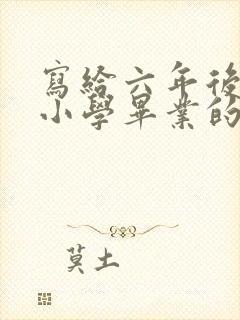 寫給六年後
小學畢業的
莫土